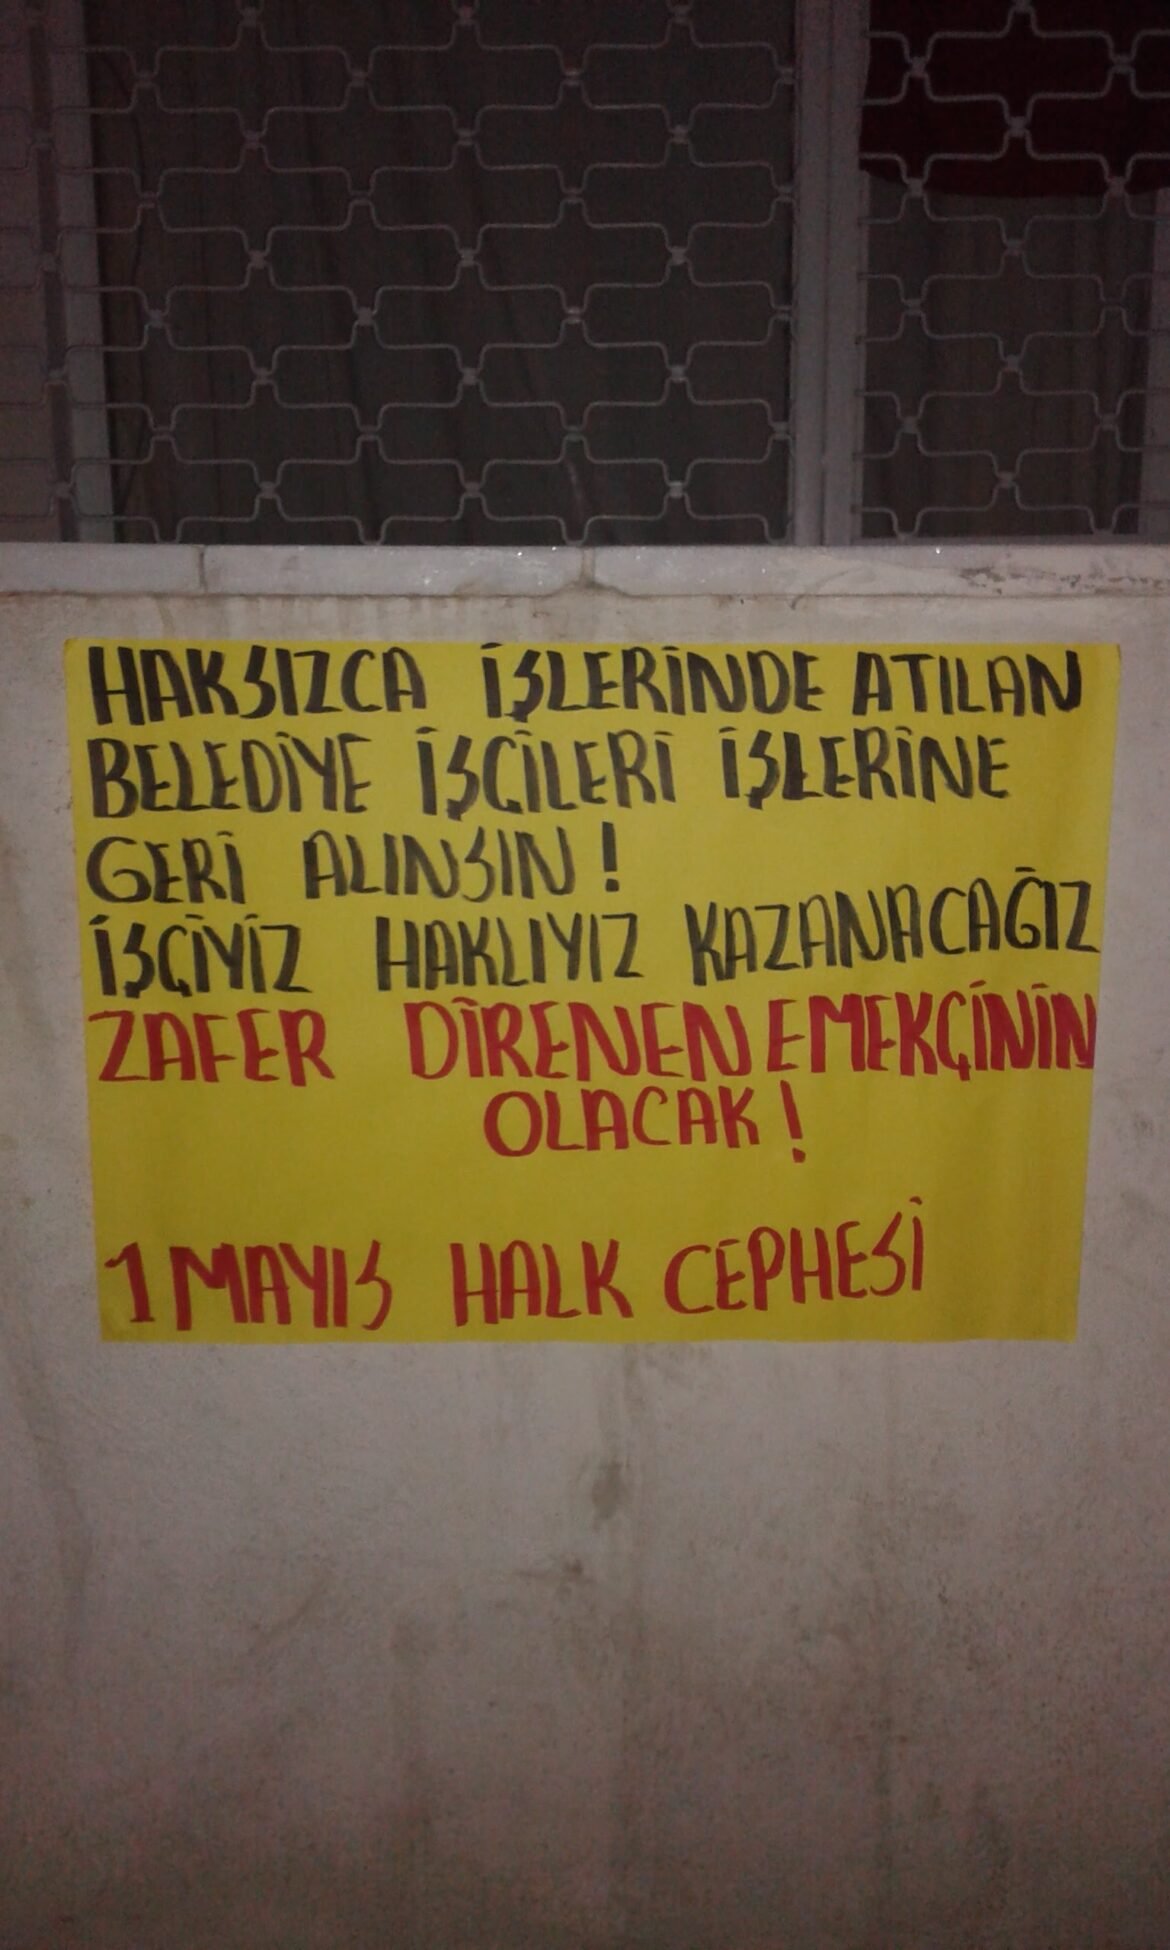 HAKSIZCA İŞLERİNDE ATILAN
BELEDİYE İŞÇİLERİ İŞLERİNE
GERİ ALINSIN !
İŞÇİYİZ HAKLIYIZ KAZANACAĞIZ
ZAFER DİRENEN EMEKÇİNİN
OLACAK !
1 MAYIS HALK CEPHESİ